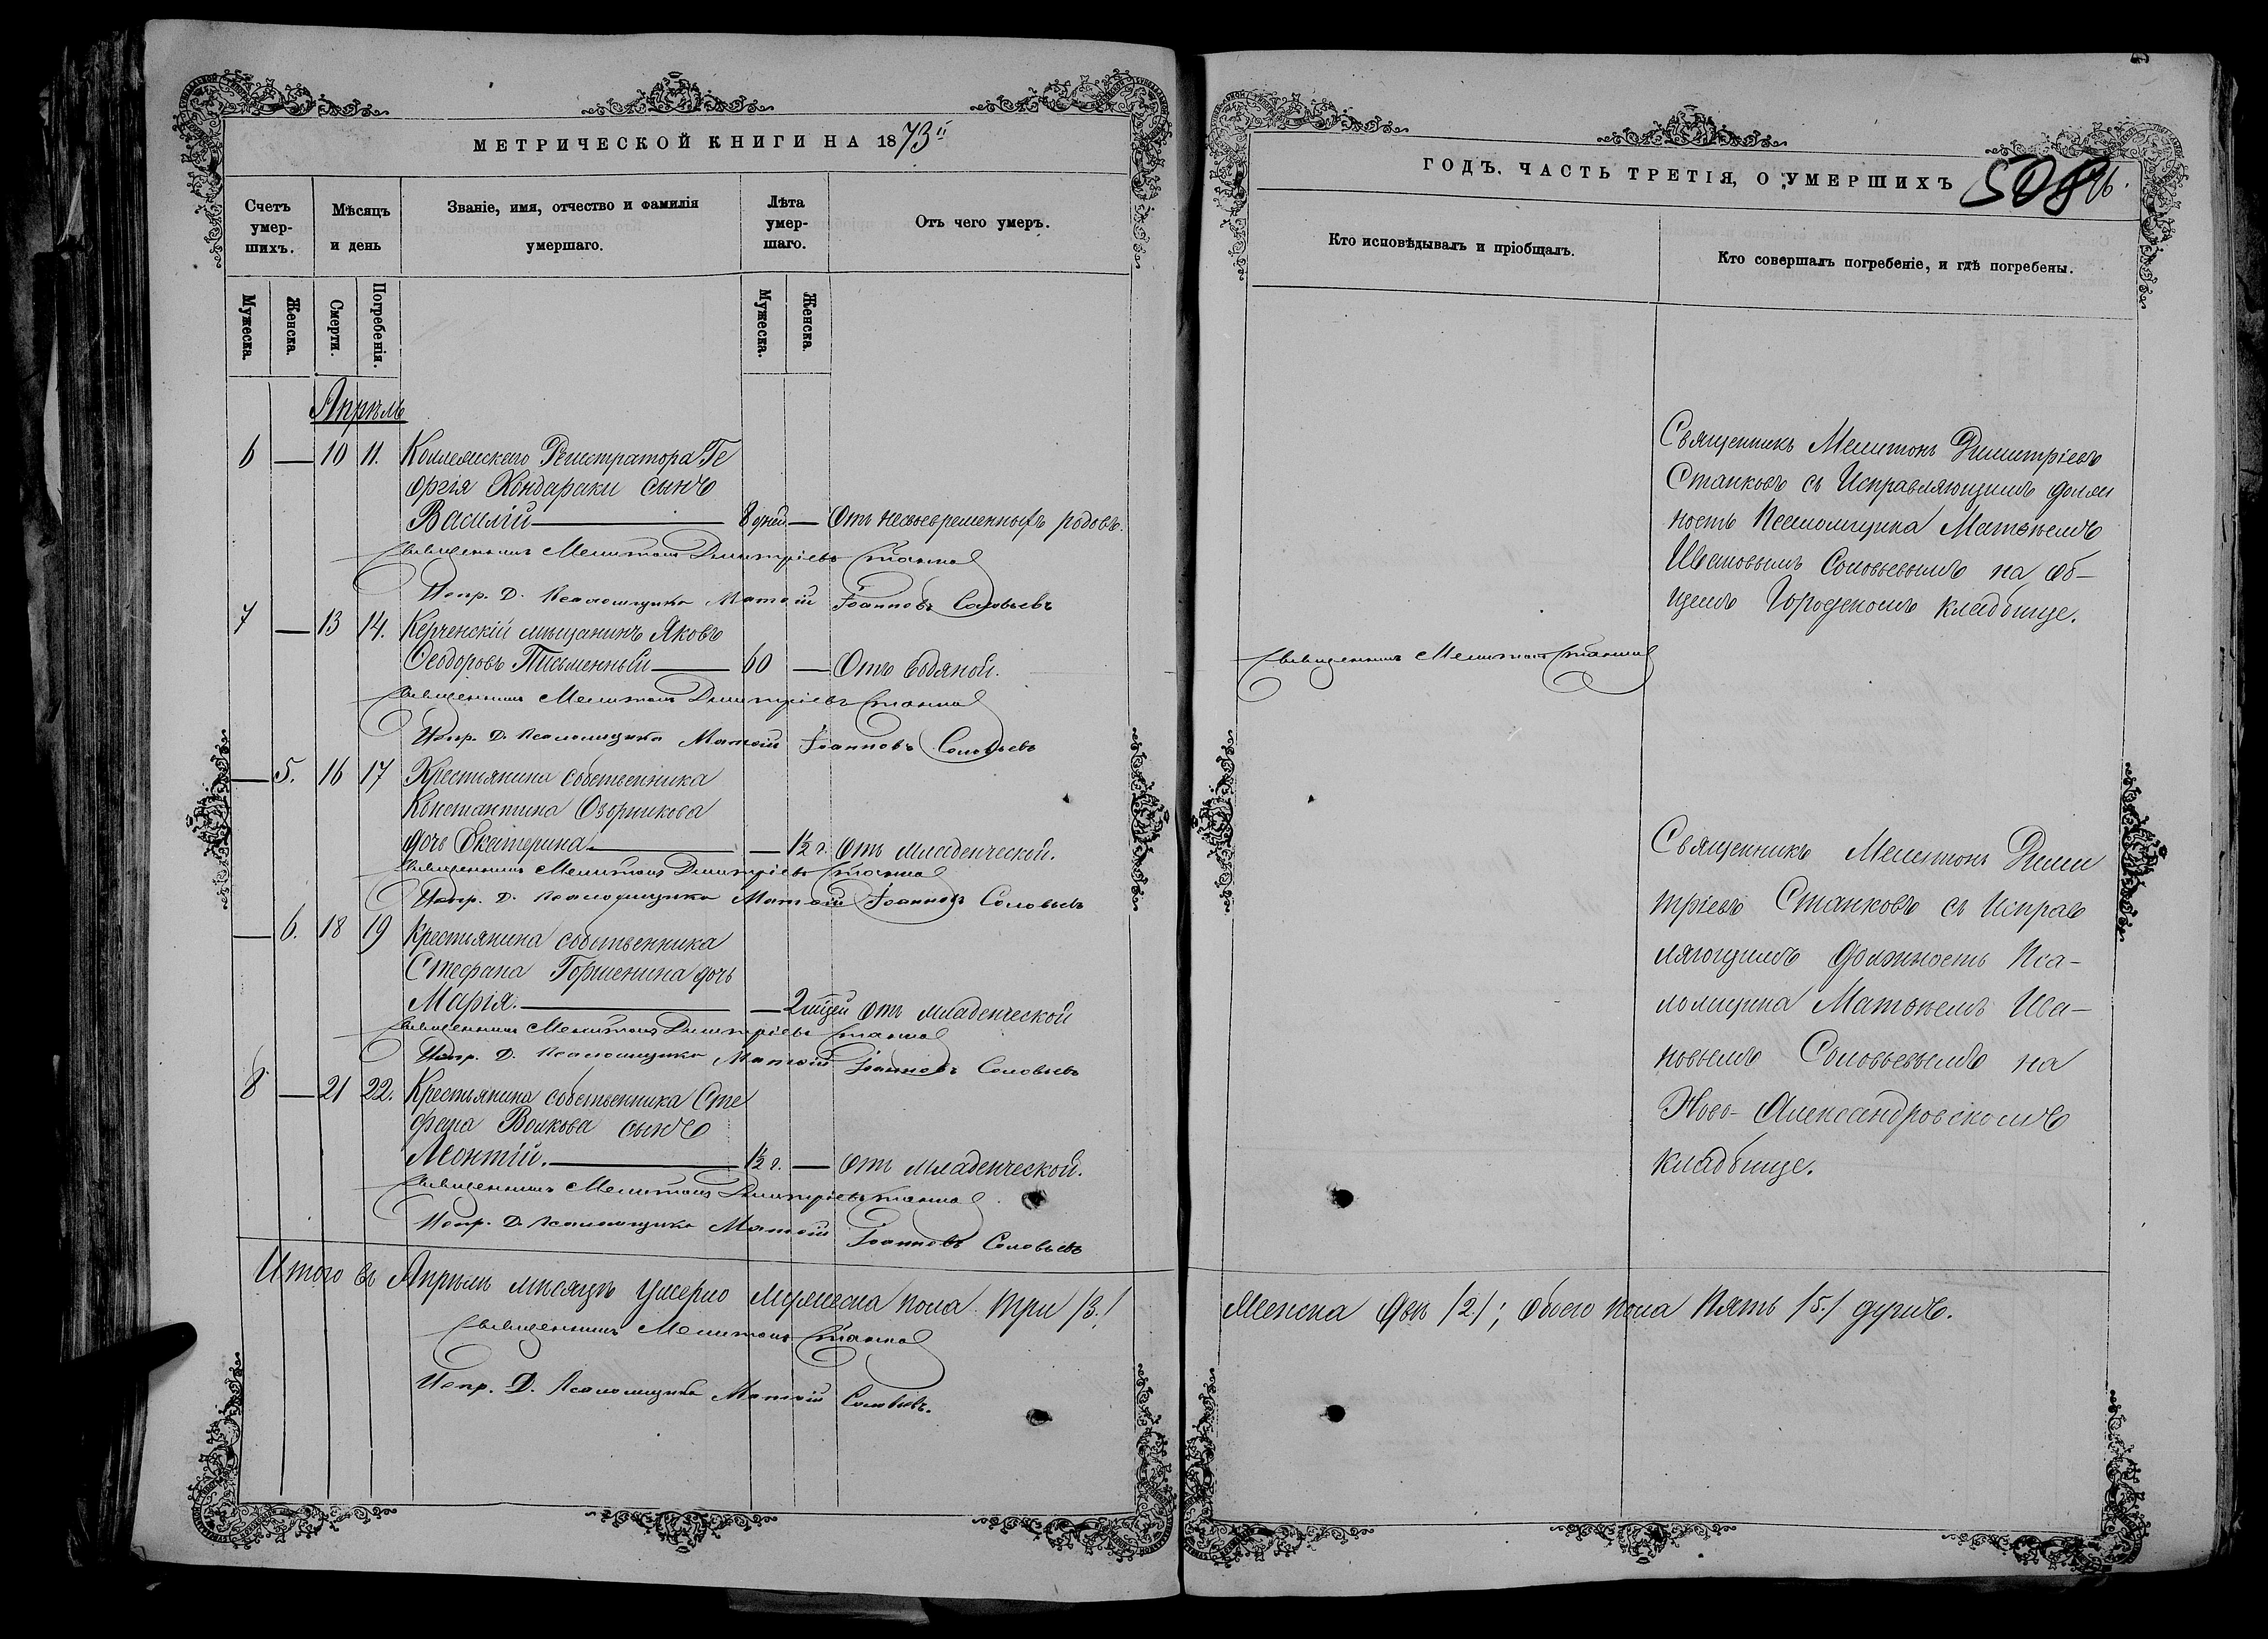 МЕТРИЧЕСКОЙ КНИГИ НА 1873й
Счетъ умер-шихъ.
Мѣсяцъ и день
Званіе, имя, отчество и фамилія умершаго.
Лѣта умер-шаго.
Отъ чего умеръ.
Мужеска.
Женска.
Смерти.
Погребенія.
Мужеска.
Женска.
Апрѣль
6 — 10 11. Коллежскаго Регистратора Ге
оргія Кондараки сынъ
Василій — 8 дней — Отъ несвоевременныхъ родовъ.
Священникъ Мелитонъ Димитріевъ Станковъ
Испр. Д. Псаломщика Матѳій Іоанновъ Соловьевъ
7 — 13 14. Керченскій мѣщанинъ Яковъ
Ѳеодоровъ Письменный — 60 — Отъ водяной.
Священникъ Мелитонъ Димитріевъ Станковъ
Испр. Д. Псаломщика Матѳій Іоанновъ Соловьевъ
— 5. 16 17 Крестьянина собственника
Константина Озорникова
дочь Екатерина. — — 1½ г. Отъ младенческой.
Священникъ Мелитонъ Димитріевъ Станковъ
Испр. Д. Псаломщика Матѳій Іоанновъ Соловьевъ
— 6. 18 19 Крестьянина собственника
Стефана Горшенина дочь
Марія. — — 2 мцей Отъ младенческой
Священникъ Мелитонъ Димитріевъ Станковъ
Испр. Д. Псаломщика Матѳій Іоанновъ Соловьевъ
8 — 21 22. Крестьянина собственника Сте
фана Волкова сынъ
Леонтій. — 1½ г. — Отъ младенческой.
Священникъ Мелитонъ Димитріевъ Станковъ
Испр. Д. Псаломщика Матѳій Іоанновъ Соловьевъ
Итого въ Апрѣлѣ мѣсяцѣ умерло мужеска пола три /3./
Священникъ Мелитонъ Станковъ
Испр. Д. Псаломщика Матѳій Соловьевъ.
ГОДЪ. ЧАСТЬ ТРЕТІЯ, О УМЕРШИХЪ
508
Кто исповѣдывалъ и пріобщалъ.
Кто совершалъ погребеніе, и гдѣ погребены.
Священникъ Мелитонъ Димитріевъ
Станковъ съ Исправляющимъ долж
ность Псаломщика Матѳѣемъ
Ивановымъ Соловьевымъ на об-
щемъ Городскомъ кладбище.
Священникъ Мелитонъ Станковъ
Священникъ Мелитонъ Дими
тріевъ Станковъ съ Исправ
ляющимъ должность Пса-
ломщика Матѳѣемъ Ива-
новымъ Соловьевымъ на
Ново-Александровскомъ
кладбище.
Женска двѣ /2./; обоего пола пять /5./ душъ.